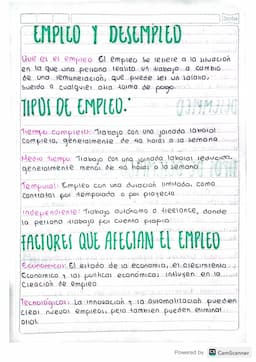 EMPLEO Y DESEMPLEO
Que es el empleo El empleo se refiere a la situacion
en la que una persona realiza un trabajo a cambio
de una remuneracion, que puede ser un salario,
sueldo o cualquier otra forma de pago.
TIPOS DE EMPLEO:
Tiempo completo: Trabajo con una jornada laboral
completa, generalmente de 40 horas a la semana
Medio tiempo Trabajo con una jornada laboral reducida,
generalmente menos de 40 horas a la semana
Temporal: Empleo con una duracion limitada, como
contratos por temporada o por proyecto
Independiente: Trabajo autonomo o freelance, donde
la persona trabaja por cuenta propia
FACTORES QUE AFECTAN EL EMPLEO
Economicos: El estado de la economia, el crecimiento
Economico y las politicas economicas influyen en la
creacion de empleo
Tecnologicos: La innovacion y la automatizacion pueden
crear nuevos empleos, pero tambien pueden eliminar
otros.
Powered by CS CamScanner